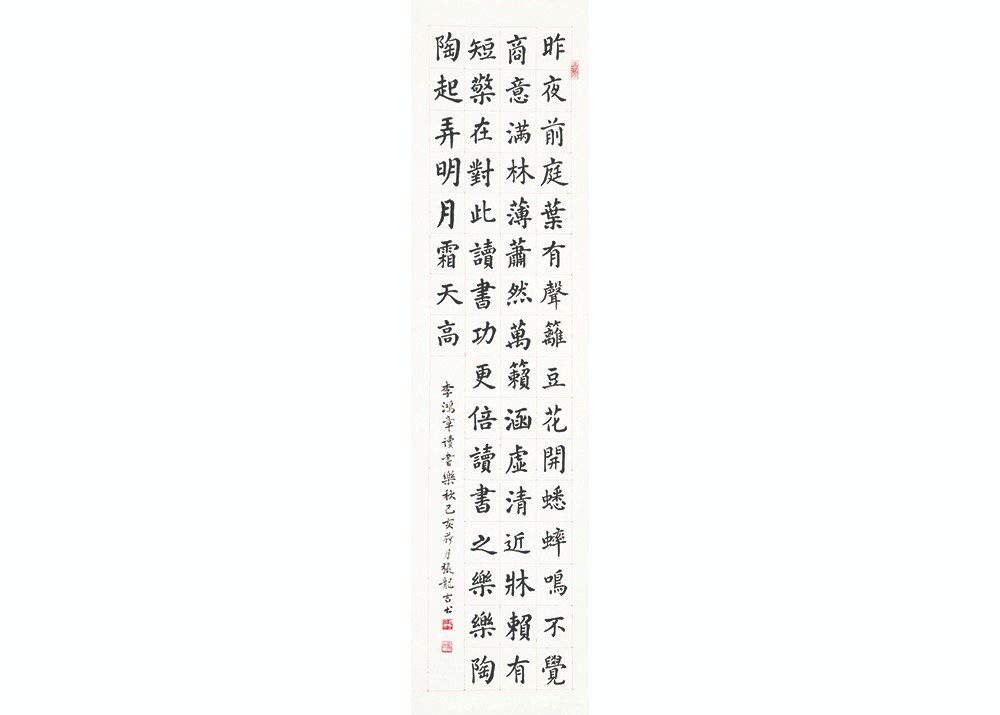 昨夜前庭葉有聲籬豆花開蟋蟀鳴不覺
商意满林薄蕭然萬籟涵虛清近牀賴有
短檠在對此讀書功更倍讀書之樂樂陶
陶起弄明月霜天高
李鴻章读書樂秋己亥荷月張龍言书